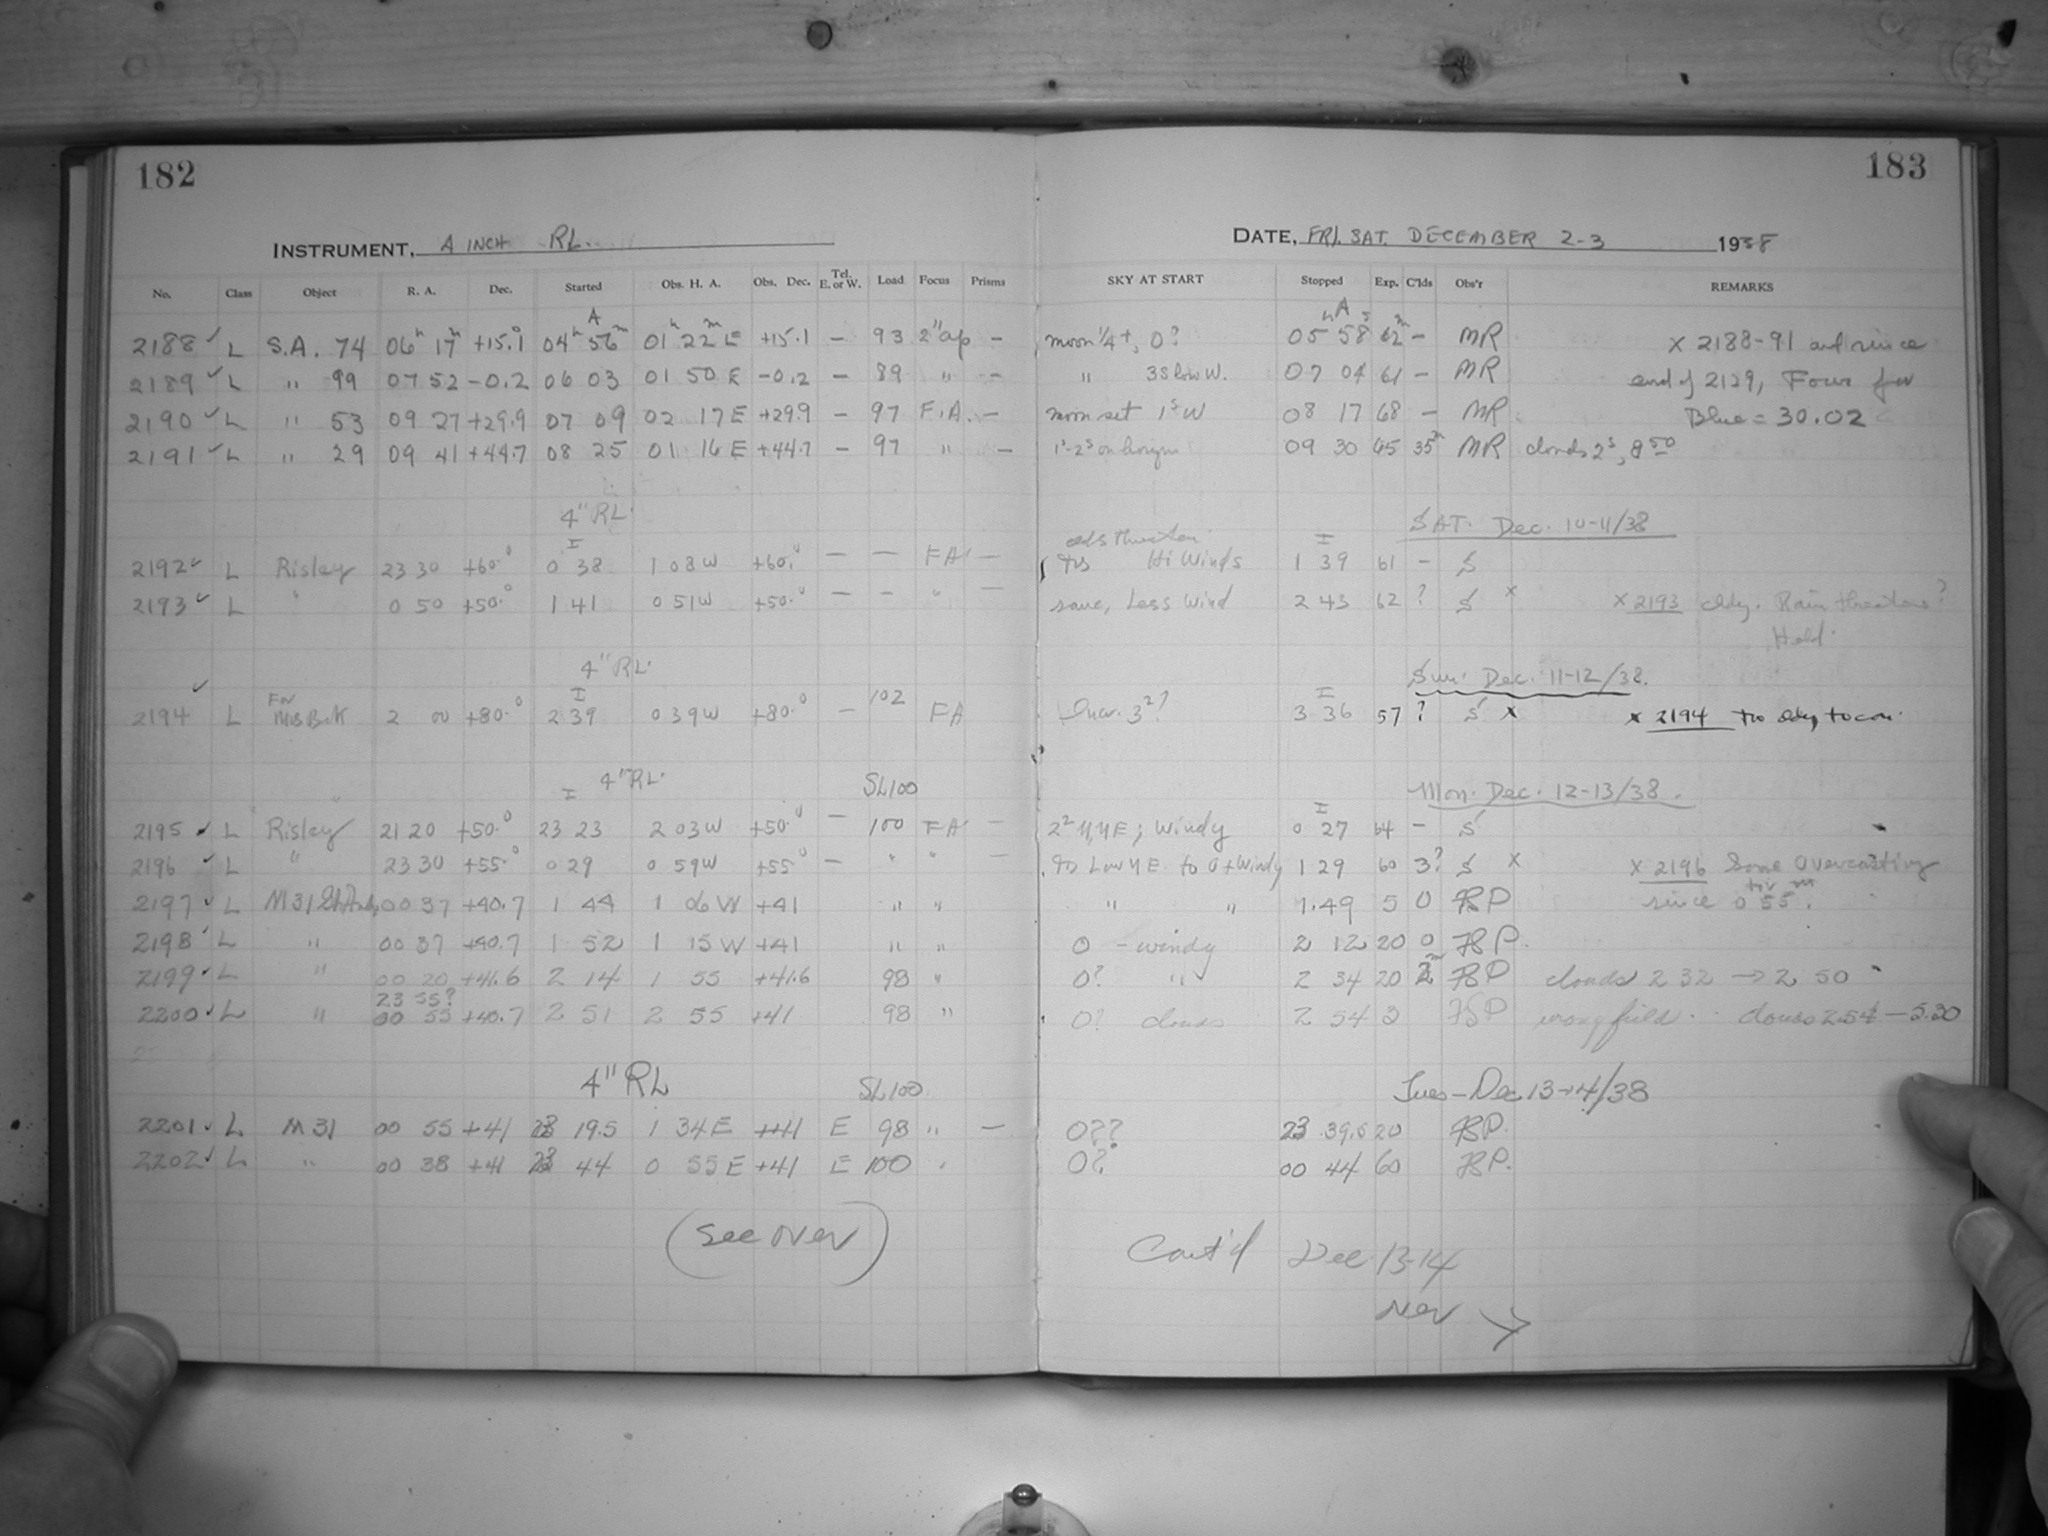 182
183
INSTRUMENT, 4 INCH RL.
DATE, FRI. SAT. DECEMBER 2-3 1938
No. Class Object R. A. Dec. Started Obs. H. A. Obs. Dec. Tel. E. or W. Load Focus Prisms SKY AT START Stopped Exp. C'lds Obs'r REMARKS
2188 ✓ L S.A. 74 06h 17m +15.1° 04h 56m A 01h 22m E +15.1 — 93 2" ap — moon 1/4+, 0? 05 58 A 62m — MR x 2188-91 and since
2189 ✓ L " 99 07 52 -0.2 06 03 01 50 E -0.2 — 89 " — " 3S low W. 07 04 61 — MR end of 2129, Focus for
2190 ✓ L " 53 09 27 +29.9 07 09 02 17 E +29.9 — 97 F.A. — moon set 1s W 08 17 68 — MR Blue = 30.02
2191 ✓ L " 29 09 41 +44.7 08 25 01 16 E +44.7 — 97 " — 1s-2s on horizon 09 30 65 35m MR clouds 2s, 8 50
4" RL. SAT. Dec. 10-11/38
2192 ✓ L Risley 23 30 +60.° I 0 38 1 08 W +60.° — — FA — clds threaten Hi Winds I 1 39 61 — S
2193 ✓ L " 0 50 +50.° 1 41 0 51 W +50.° — — " — same, Less Wind 2 43 62 ? S x x 2193 cldy. Rain threatens?
Held.
4" RL. Sun. Dec. 11-12/38.
2194 ✓ L For 2 00 +80.° I 2 39 0 39 W +80.° — 102 FA 3²? I 3 36 57 ? S x x 2194 Too cldy to con.
4" RL. SL100 Mon. Dec. 12-13/38.
2195 ✓ L Risley 21 20 +50.° I 23 23 2 03 W +50.° — 100 FA — 2² NNE; Windy I 0 27 64 — S
2196 ✓ L " 23 30 +55.° 0 29 0 59 W +55° — " " — Low NE to 0 + Windy 1 29 60 3? S x x 2196 Some Overcasting
2197 ✓ L M31 00 37 +40.7 1 44 1 06 W +41 " " " " 1.49 5 0 FSP since 0 hr 55 m.
2198 ✓ L " 00 37 +40.7 1 52 1 15 W +41 " " 0 - windy 2 12 20 0 FSP.
2199 ✓ L " 00 20 +41.6 2 14 1 55 +41.6 98 " 0? " 2 34 20 2m FSP clouds 2 32 → 2 50
23 55?
2200 ✓ L " 00 55 +40.7 2 51 2 55 +41 98 " 0? clouds 2 54 3 FSP wrong field. clouds 2.54 — 5.30
4" RL SL100 Tues - Dec 13-14/38
2201 ✓ L M 31 00 55 +41 23 19.5 1 34 E +41 E 98 " — 0?? 23 39.5 20 FSP.
2202 ✓ L " 00 38 +41 23 44 0 55 E +41 E 100 " 0? 00 44 60 FSP.
(See over)
Cont'd Dec 13-14
over →